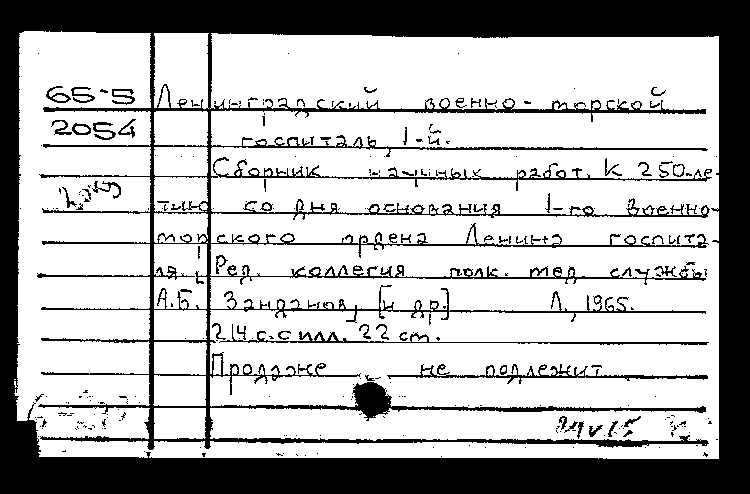 65-5 Ленинградский военно-морской
2054 госпиталь, 1-й.
Сборник научных работ. К 250-ле-
2 экз тию со дня основания 1-го военно-
морского ордена Ленина госпита-
ля. [Ред. коллегия полк. мед. службы
А.Б. Занданов, [и др.] Л., 1965.
214 с. с илл. 22 см.
Продаже не подлежит